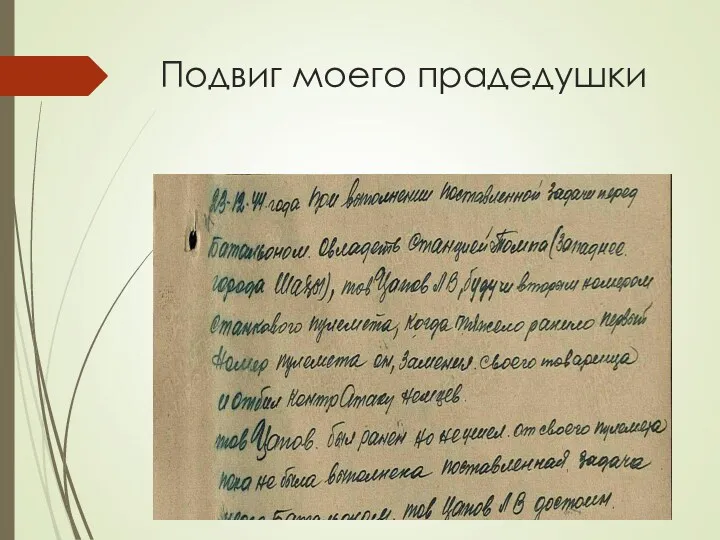 Подвиг моего прадедушки
23-12-44 года при выполнении поставленной задачи перед
Батальоном. Овладеть Станцией Томпа (Западнее.
города Шаҳы), тов Цапов Л В, будучи вторым номером
Станкового пулемета, когда тяжело ранило первый
Номер пулемета он, заменил. своего товарища
и отбил контр Атаку немцев.
тов Цапов. был ранен но не ушел. от своего пулемета
пока не была выполнена поставленная. задача
Батальоном. тов Цапов Л В достоин.